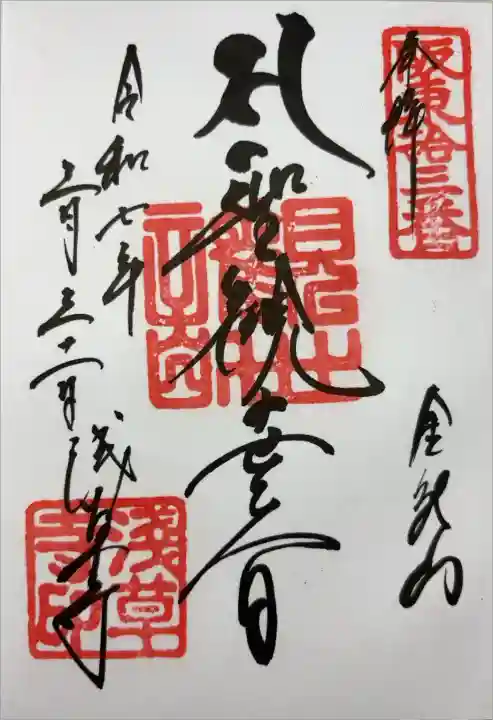 奉拝
坂東拾三番
金龍山
聖観世音
令和七年
三月三十一日
浅草寺
淺草寺印